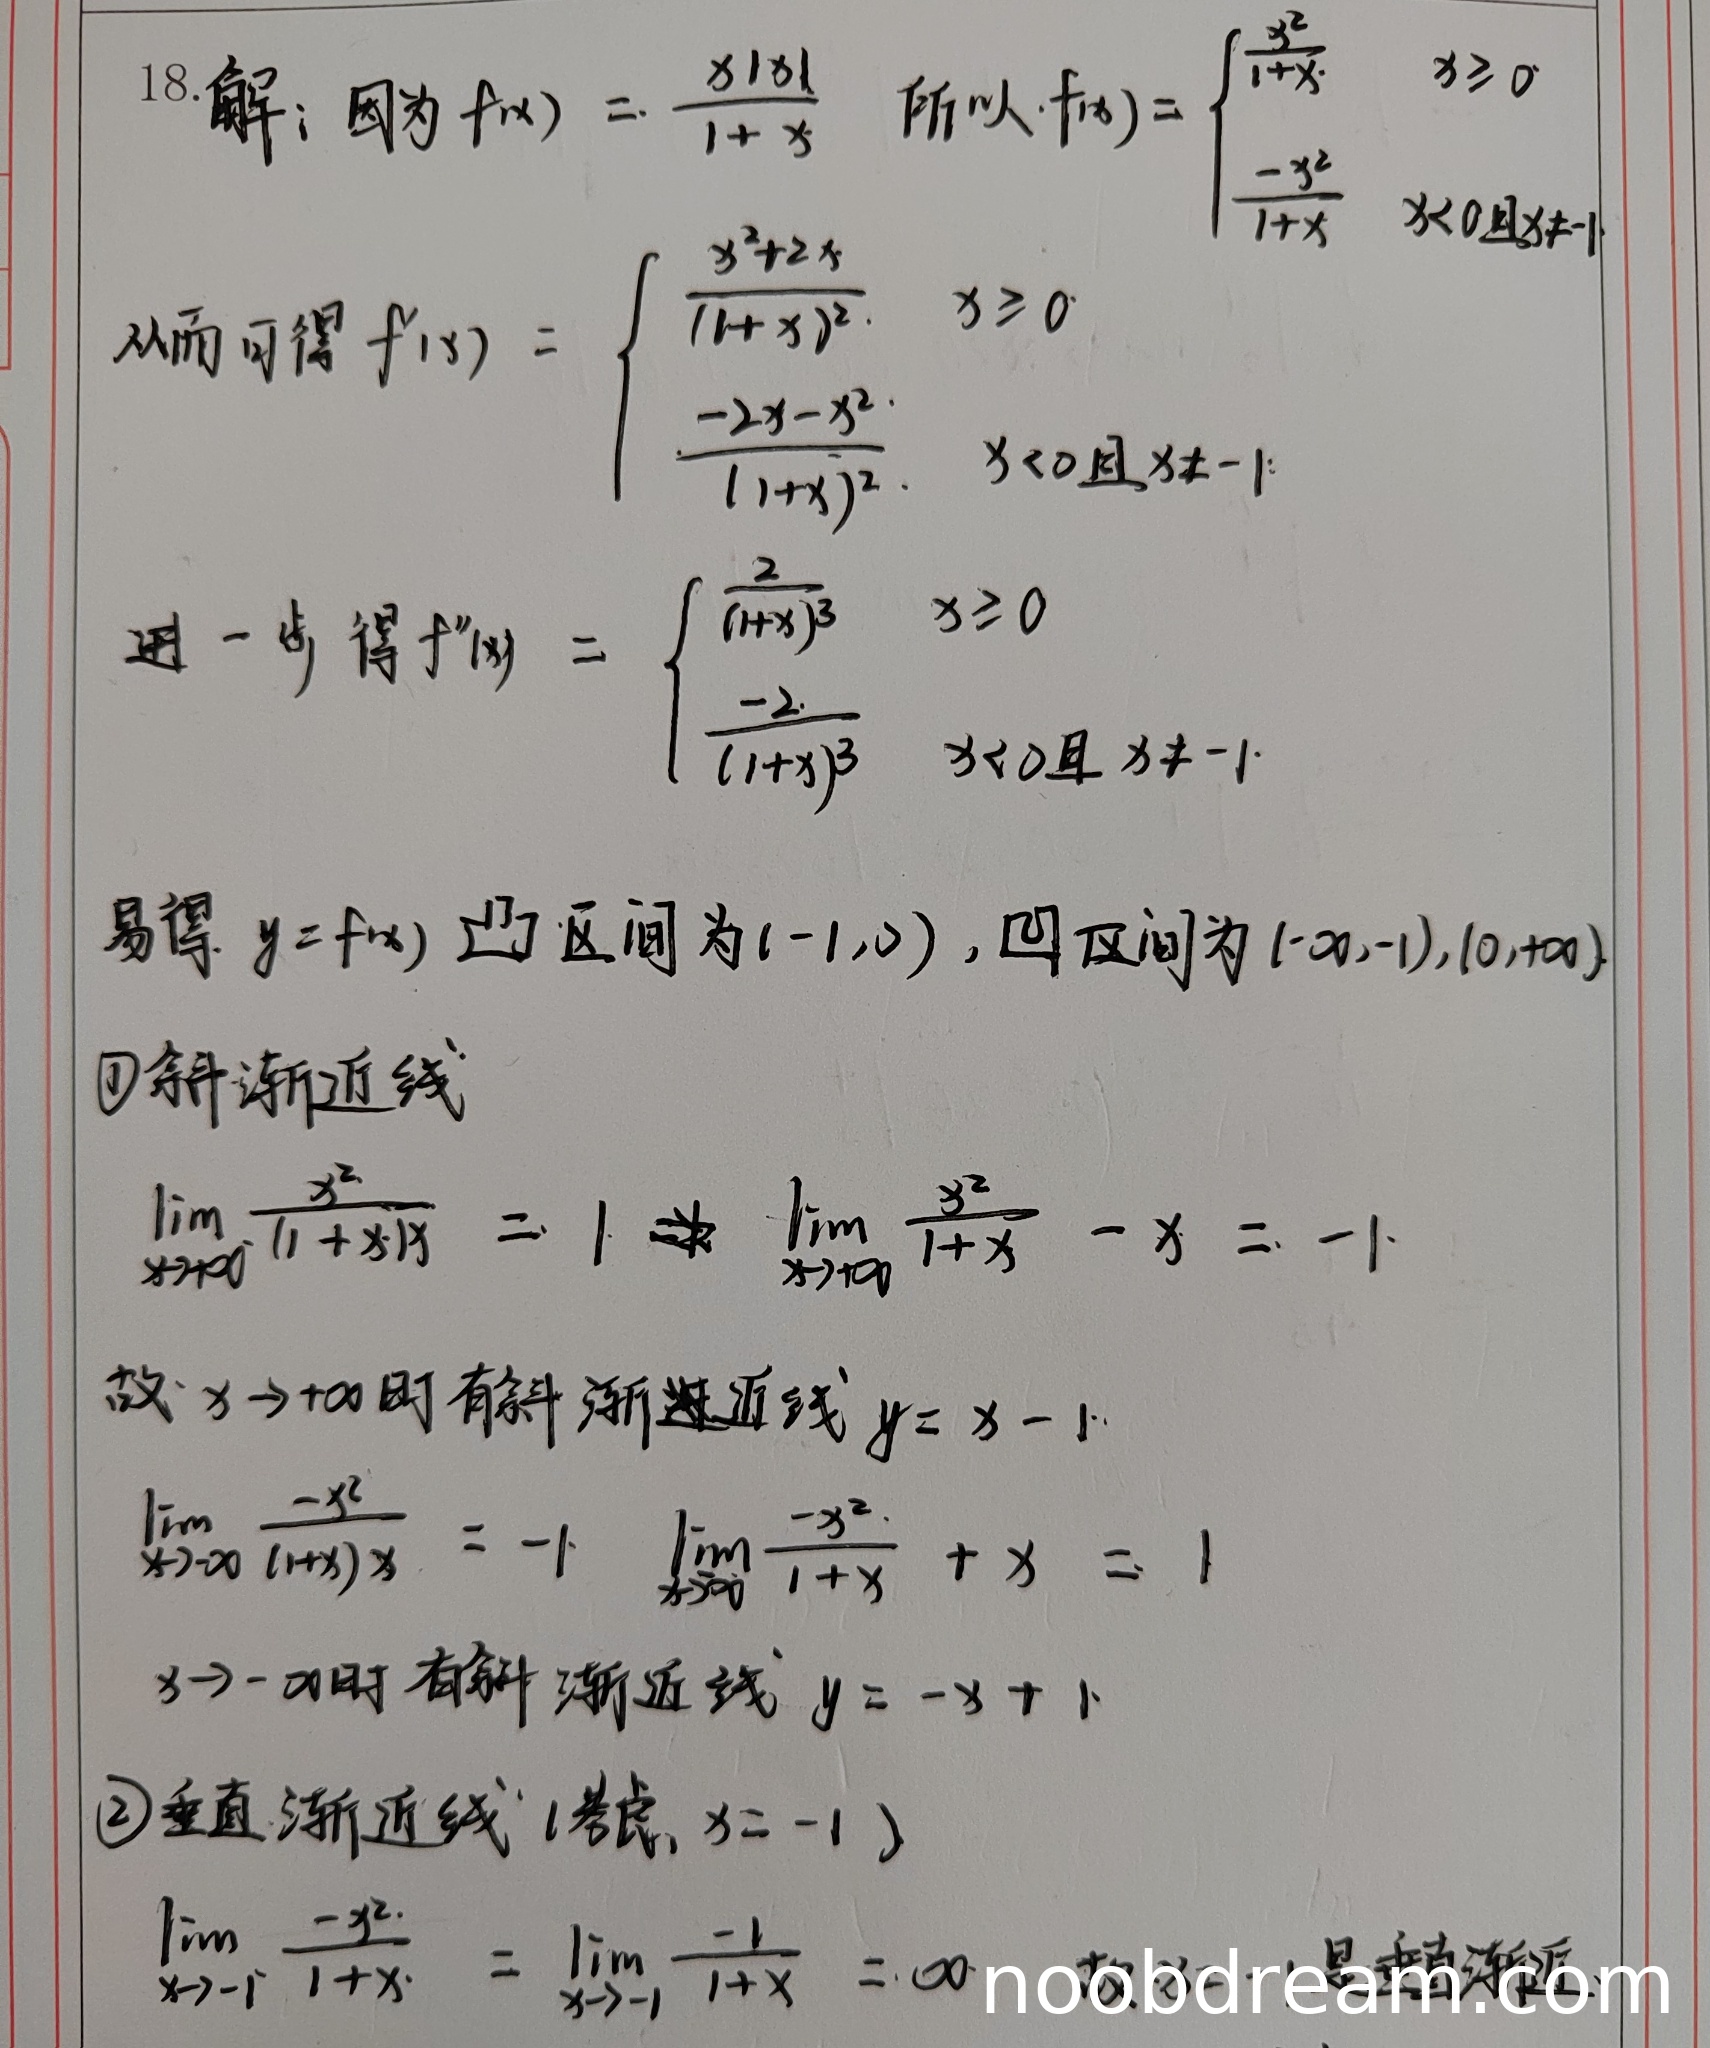 18.解：因为 f(x) = x|x|/(1+x) 所以 f(x) = { x²/(1+x) x≥0
-x²/(1+x) x<0且x≠-1
从而可得 f'(x) = { (x²+2x)/(1+x)² x≥0
(-2x-x²)/(1+x)² x<0且x≠-1
进一步得 f''(x) = { 2/(1+x)³ x≥0
-2/(1+x)³ x<0且x≠-1
易得 y=f(x) 凸区间为(-1,0),凹区间为(-∞,-1),(0,+∞)
①斜渐近线
lim x→+∞ x²/((1+x)x) = 1 lim x→+∞ x²/(1+x) - x = -1
故 x→+∞时有斜渐近线 y=x-1
lim x→-∞ -x²/((1+x)x) = -1 lim x→-∞ -x²/(1+x) + x = 1
x→-∞时有斜渐近线 y=-x+1
②垂直渐近线(考虑 x=-1)
lim x→-1 -x²/(1+x) = lim x→-1 -1/(1+x) = ∞ 故 x=-1是垂直渐近
noobdream.com